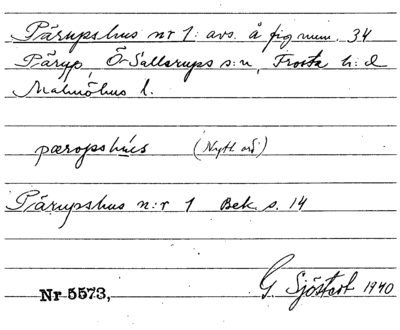 Pärupshus nr 1: avs. å fig num. 34
Pärup, Ö Sallerups s:n, Frosta h:d
Malmöhus l.
pæropshús (Nytt ord)
Pärupshus n:r 1 Bek. s. 14
G. Sjöstedt 1940
Nr 5573,